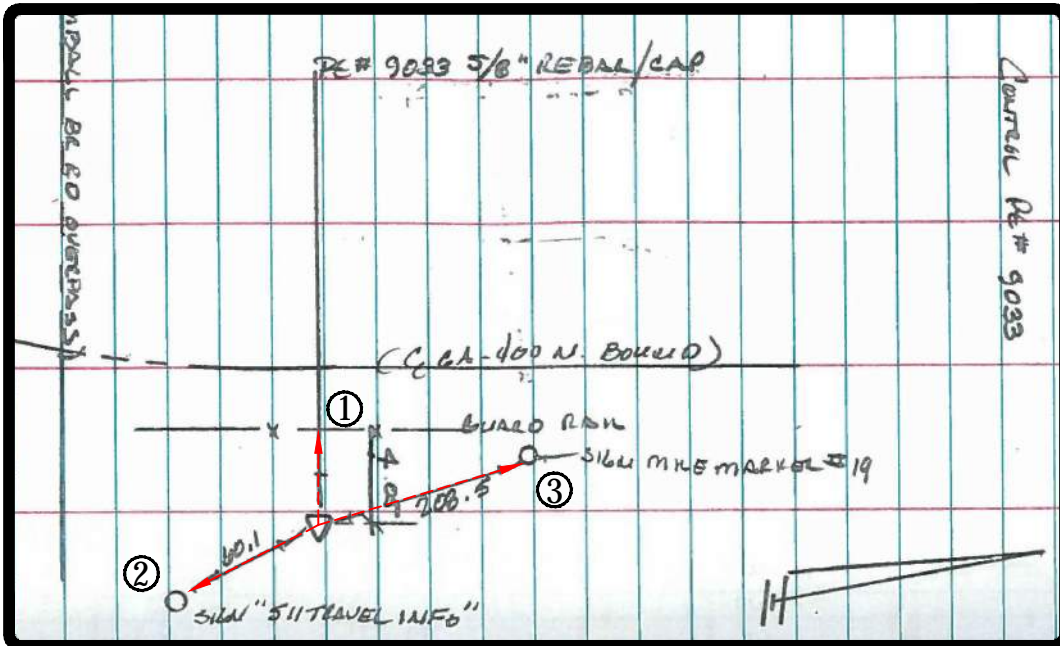 PC# 9033 5/8" REBAR/CAP
CONTROL PC# 9033
(℄ GA-400 N. BOUND)
①
GUARD RAIL
SIGN MILE MARKER #19
③
208.5
60.1
②
SIGN "511 TRAVEL INFO"
OVERPASS)